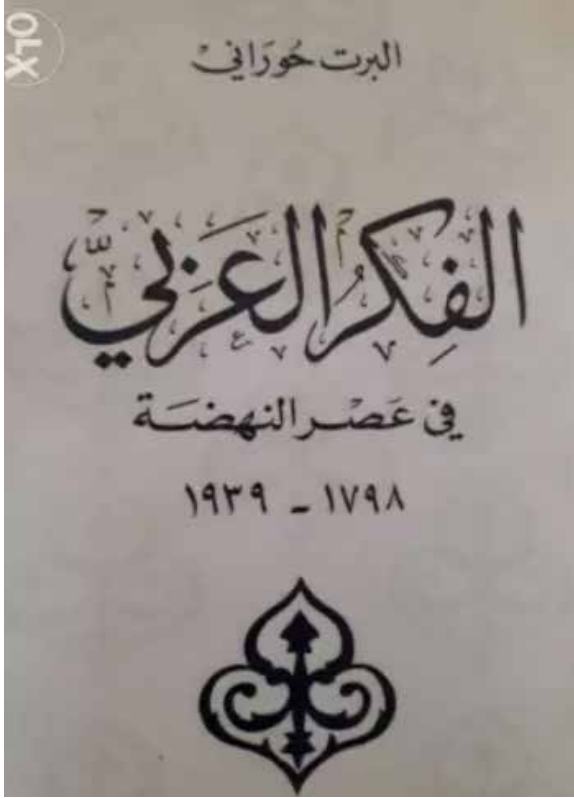 OLX
البرت حوراني
الفكر العربي
في عصر النهضة
١٧٩٨ - ١٩٣٩